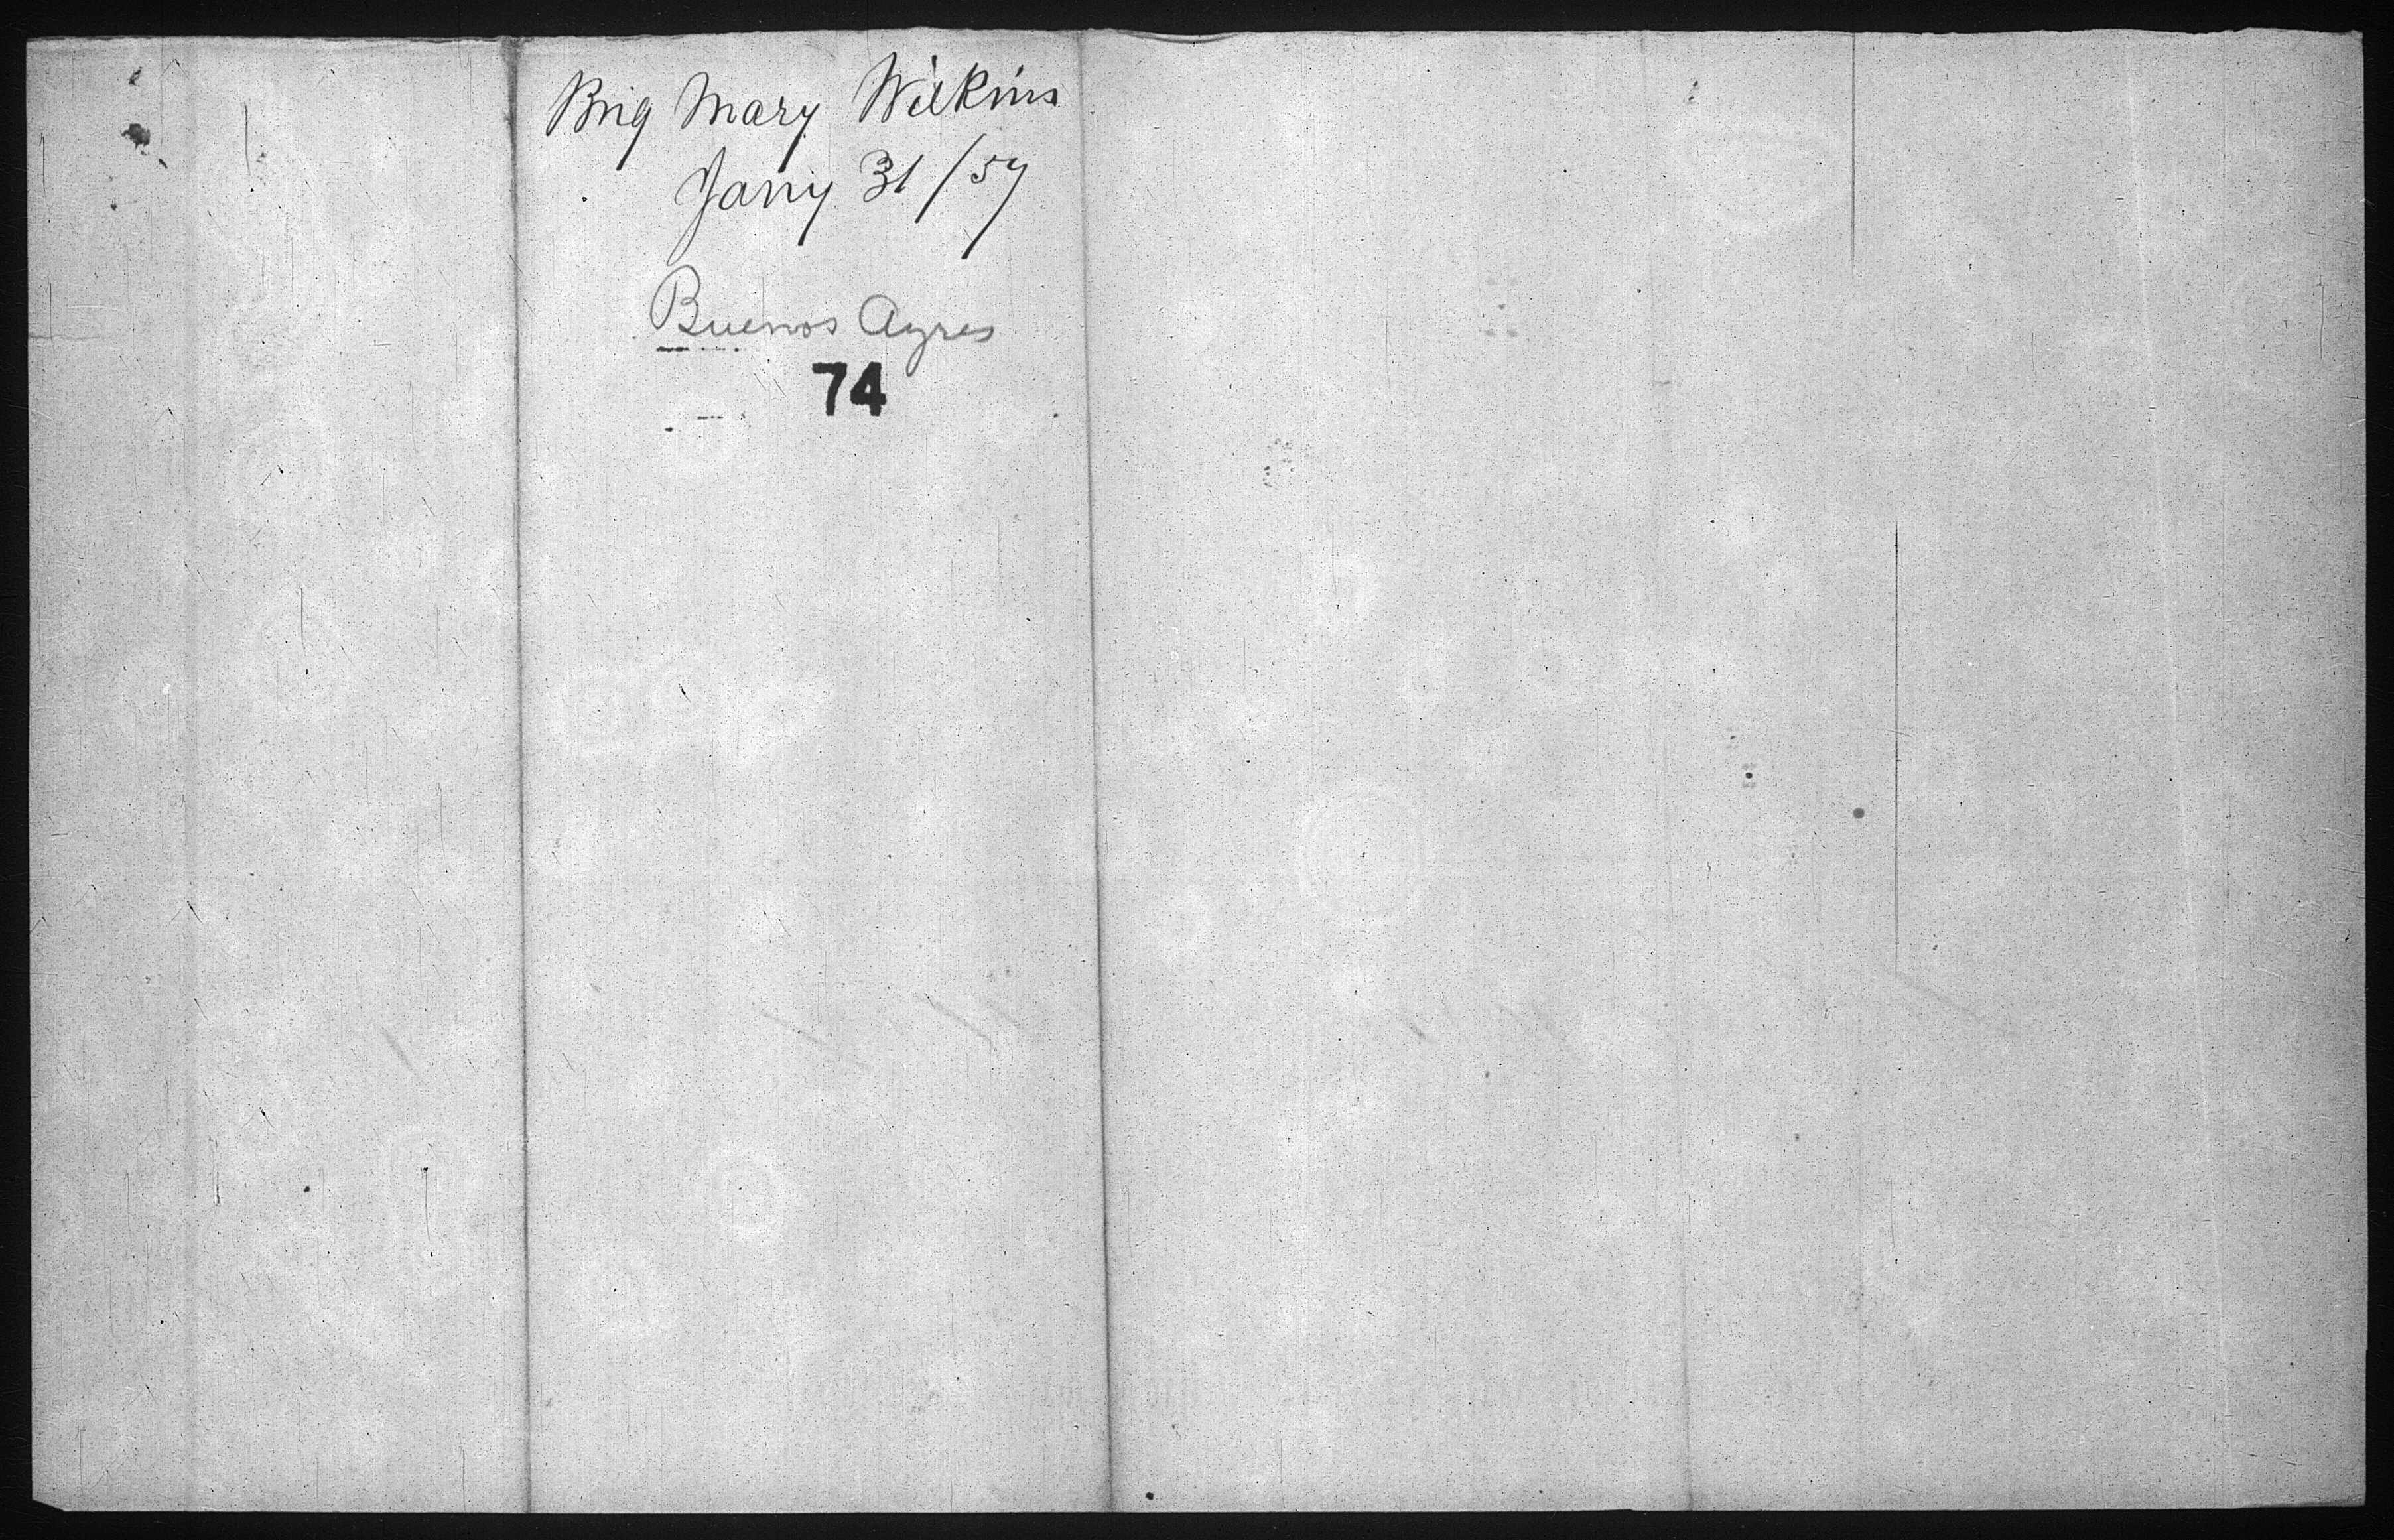 Brig Mary Wilkins
Jany 31/57
Buenos Ayres
74